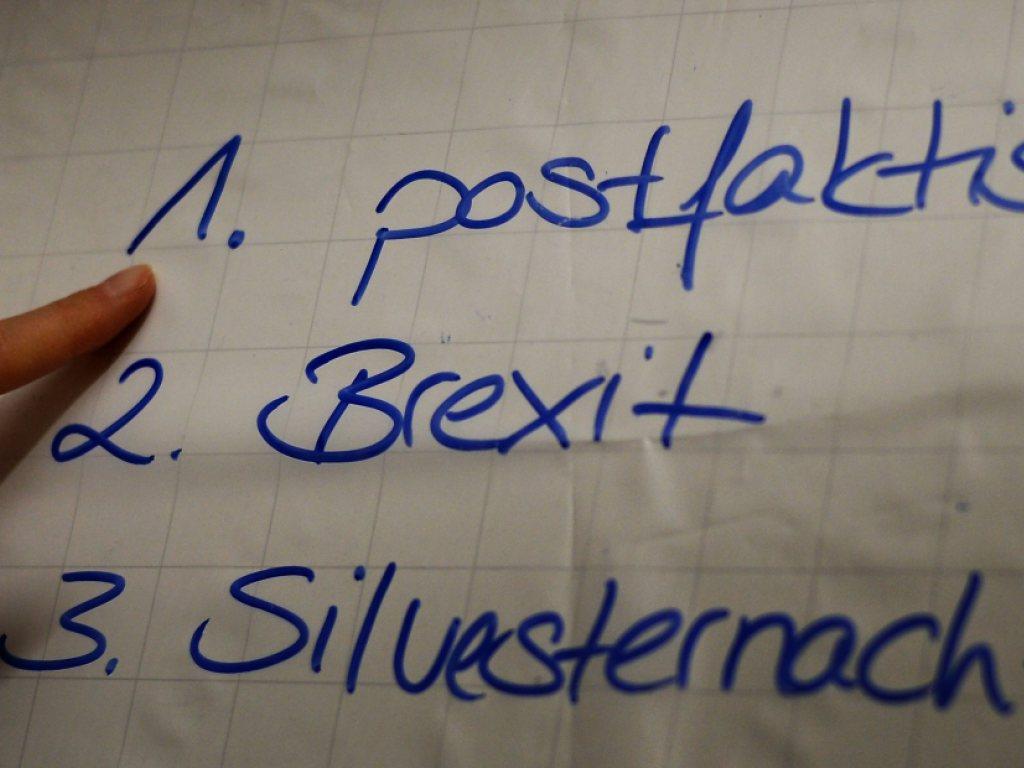 1. postfaktis
2. Brexit
3. Silvesternach